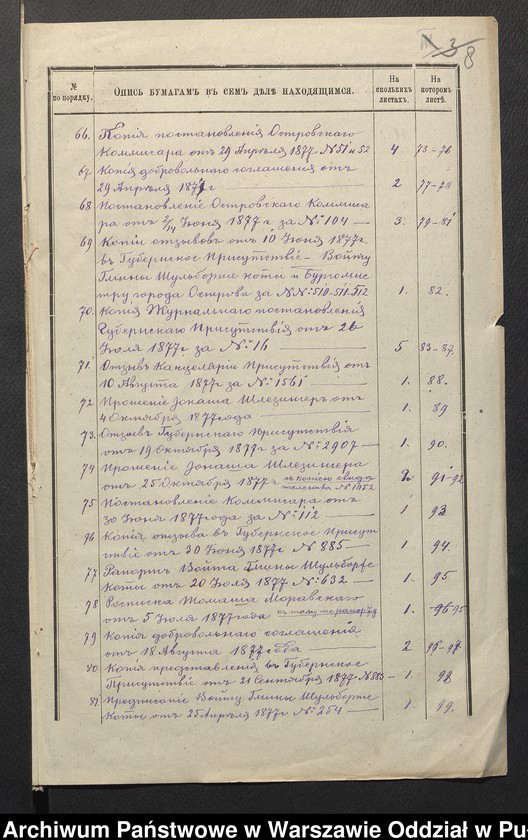 8
№ по порядку.
Опись бумагамъ въ семъ дѣлѣ находящимся.
На сколькихъ листахъ.
На которомъ листѣ.
66. Копія постановленія Островскаго
Коммисара отъ 29 Апрѣля 1877 №51 и 52 4 73-76
67 Копія добровольнаго соглашенія отъ
29 Апрѣля 1877 г 2 77-78
68 Постановленіе Островскаго Коммиса
ра отъ 2/14 Іюня 1877 г за №104 — 3. 79-81
69 Копіи отзывовъ отъ 10 Іюня 1877 г.
въ Губернское Присутствіе — Войту
Гмины Шульборже коты и Бургомис
тру города Острова за №№ 510-511-512 1. 82.
70. Копія Журнальнаго постановленія
Губернскаго Присутствія отъ 26
Іюля 1877 г за №16 5 83-87.
71. Отзывъ Канцеляріи Присутствія отъ
10 Августа 1877 г за №1561 1. 88.
72 Прошеніе Іонаша Шлезингеръ отъ
4 Октября 1877 года 1. 89
73. Отзывъ Губернскаго Присутствія
отъ 19 Октября 1877 г за №2907 — 1. 90.
74 Прошеніе Іонаша Шлезингера
отъ 25 Октября 1877 г съ копіею свидѣтельства №1052 2 91-92
75 Постановленіе Коммисара отъ
30 Іюня 1877 года за №112 1 93
76 Копія отзыва въ Губернское Присут
ствіе отъ 30 Іюня 1877 г №885 — 1. 94.
77 Рапортъ Войта Гмины Шульборже
Коты отъ 20 Іюля 1877 №632 — 1. 95
78 Росписка Томаша Моравскаго
отъ 5 Іюля 1877 года къ тому же рапорту 1.
79 Копія добровольнаго соглашенія
отъ 18 Августа 1877 года 2 96-97
80 Копія представленія въ Губернское
Присутствіе отъ 21 Сентября 1877 №883 — 1. 98
81 Предписаніе Войту Гмины Шульборже
Коты отъ 25 Апрѣля 1877 г №254 — 1. 99.
Archiwum Państwowe w Warszawie Oddział w Pu